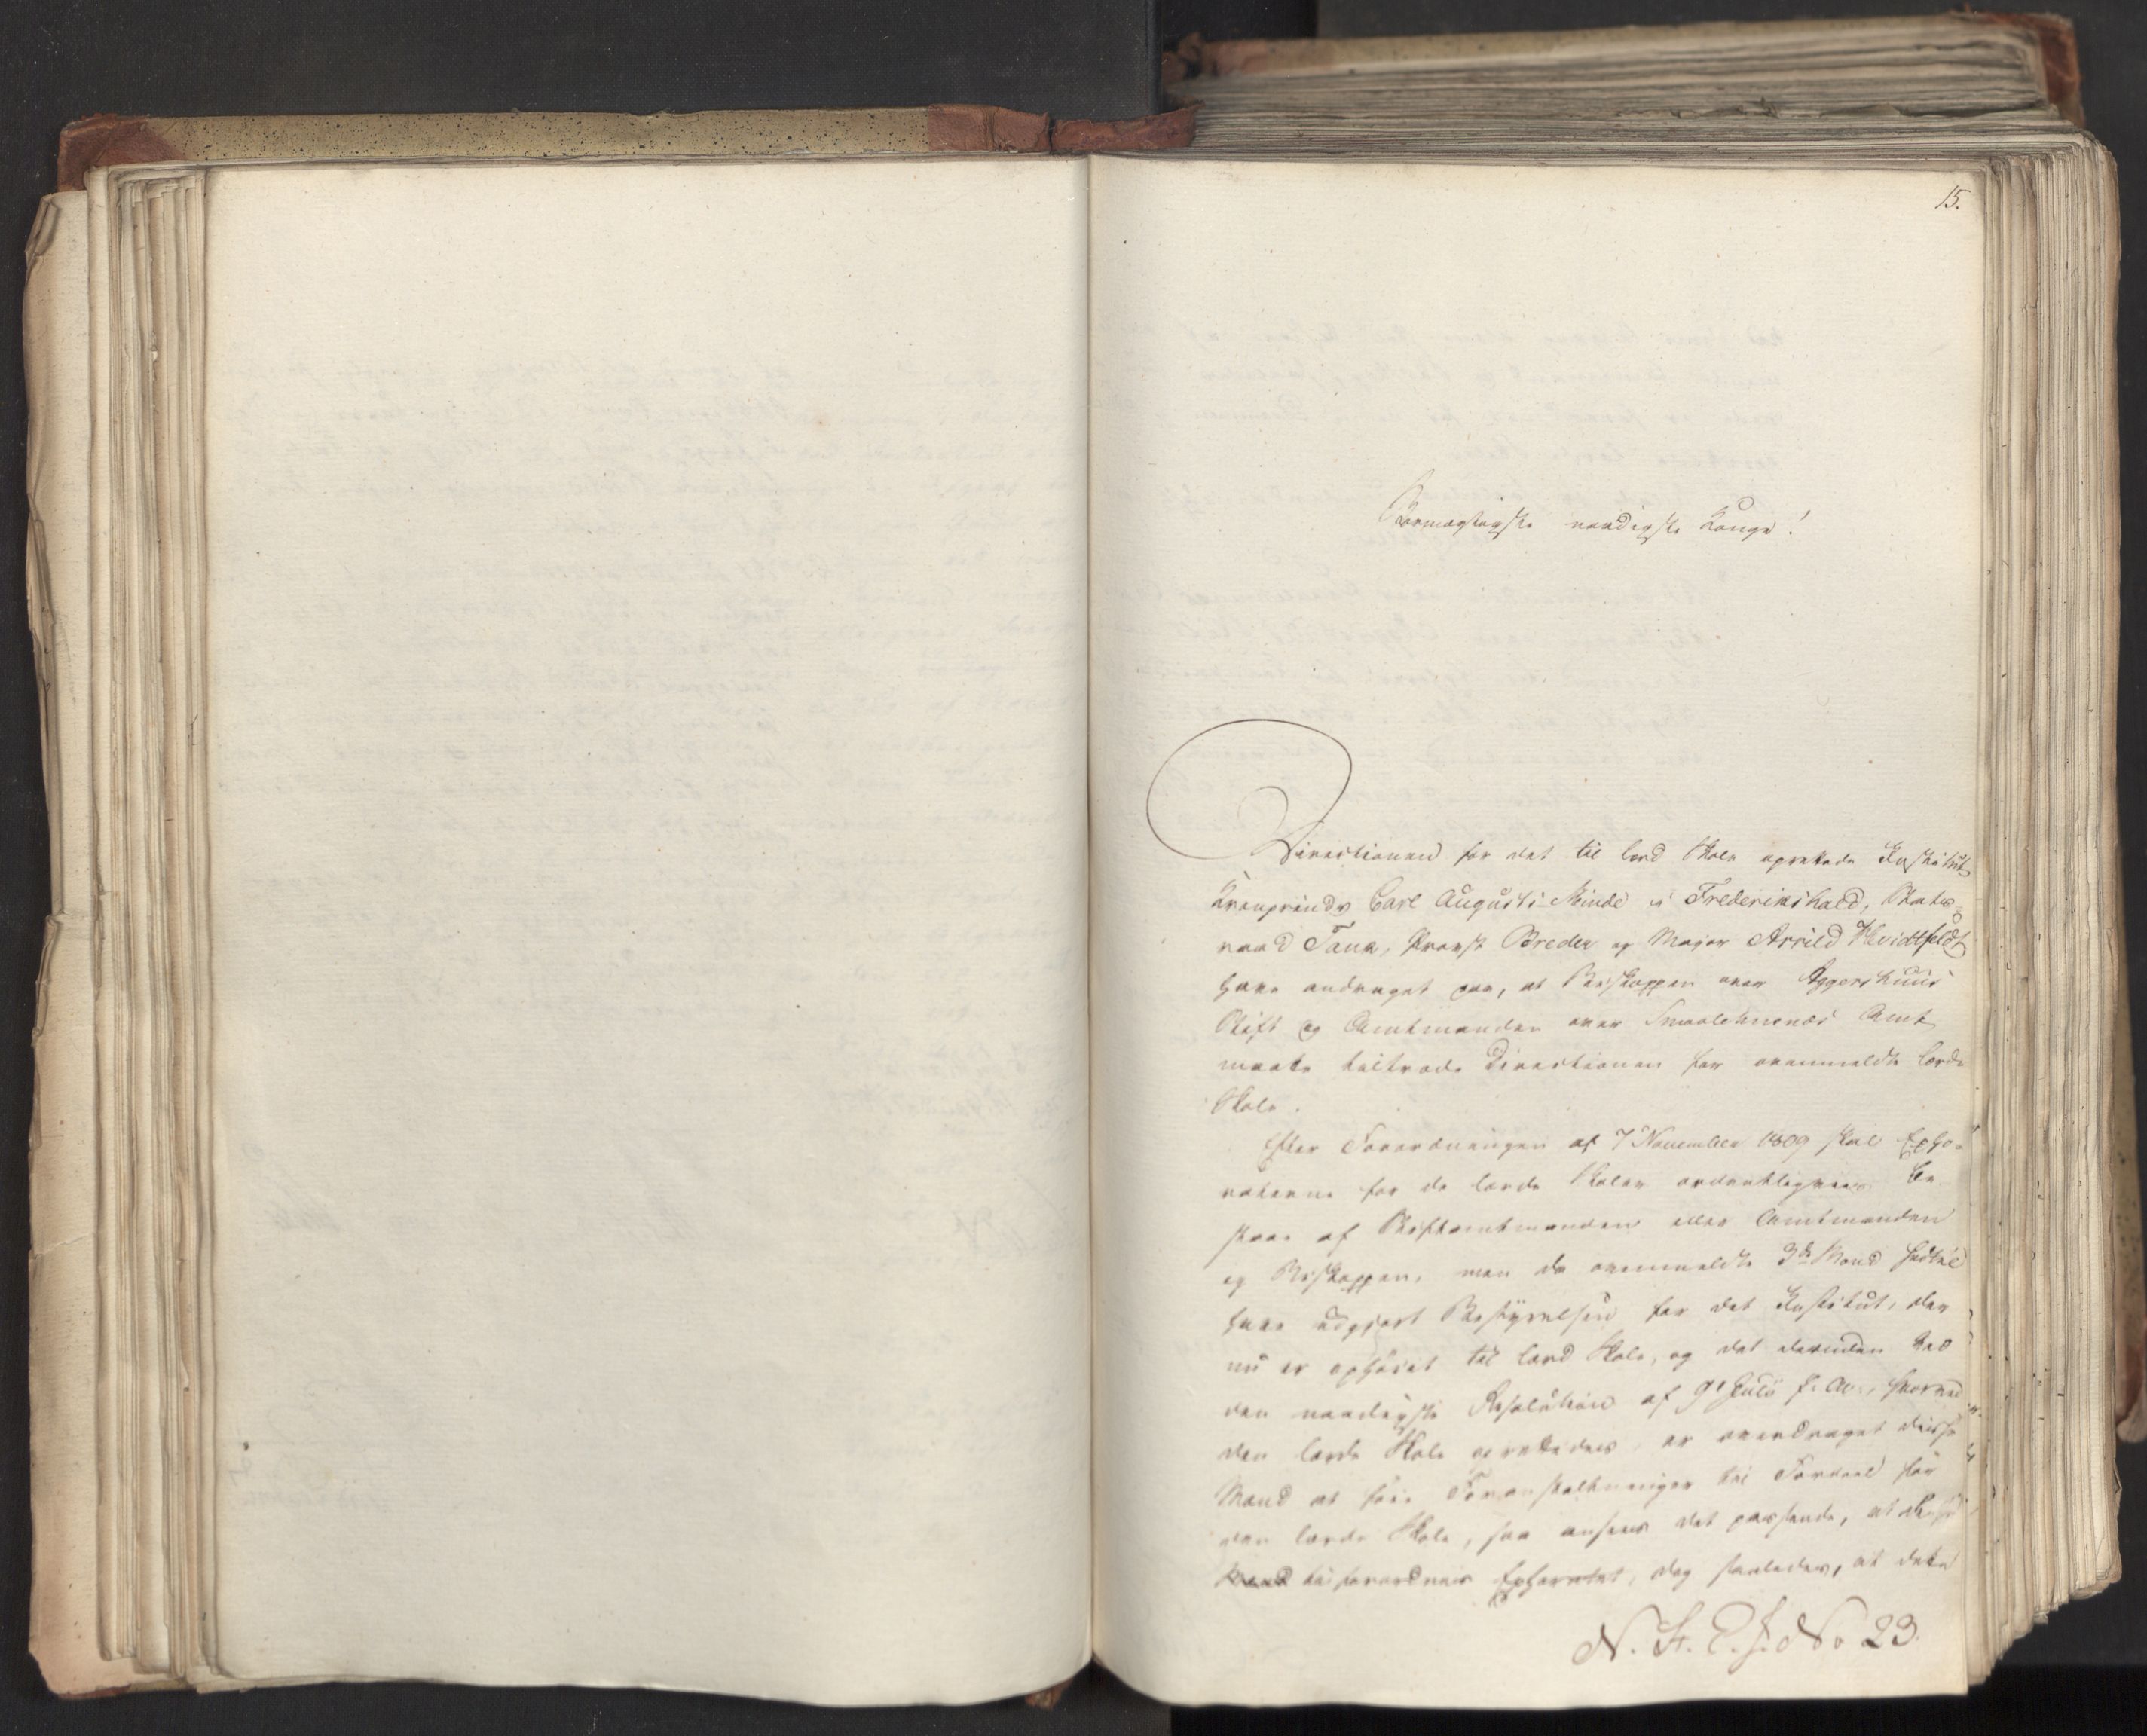 15.
Stormægtigste naadigste Konge!
Directionen for det til lærd Skole oprettede Institut
Kronprinds Carl Augusts Minde i Frederikshald, Stats-
raad Tank, Provst Breder og Major Arrild Hvidtfeldt
have andraget paa, at Biskoppen over Aggershuus
Stift og Amtmanden over Smaalehnenes Amt
maatte tiltræde Directionen for ovenmeldte lærde
Skole.
Efter Forordningen af 7 November 1809 skal Epho-
raterne for de lærde Skoler ordentligviis be-
staae af Stiftamtmanden eller Amtmanden
og Biskoppen, men da ovenmeldte 3de Mænd hidtil
have udgjort Bestyrelsen for det Institut, der
nu er ophøiet til lærd Skole, og det desuden ved
den naadigste Resolution af 9de Julii f. A., hvorved
den lærde Skole oprettedes, er overdraget disse
Mænd at føie Foranstaltninger til Fordeel for
den lærde Skole, saa ansees det passende, at disse
Mænd tilforordnes Ephoratet, dog saaledes, at dette
N. 23.